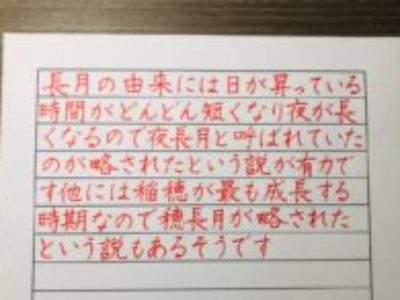 長月の由来には日が昇っている
時間がどんどん短くなり夜が長
くなるので夜長月と呼ばれていた
のが略されたという説が有力で
す他には稲穂が最も成長する
時期なので穂長月が略された
という説もあるそうです